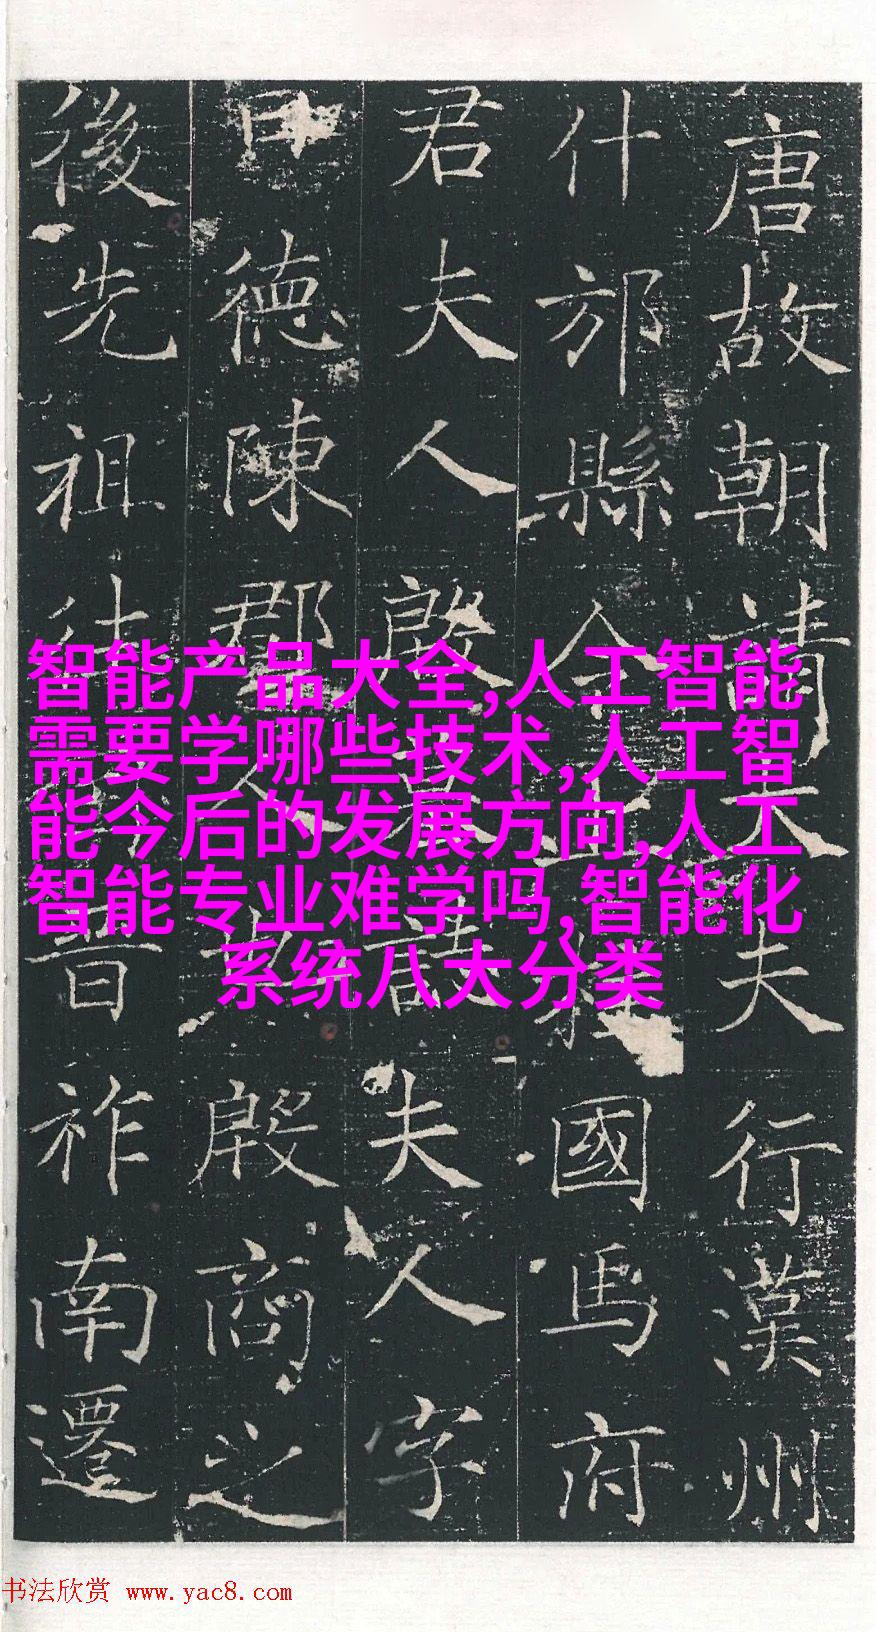 智能产品大全,人工智能
需要学哪些技术,人工智
能今后的发展方向,人工
智能专业难学吗,智能化
系统八大分类
唐故朝請大夫行漢州
什邡縣令上柱國馬府
君夫人殷誌夫人字
日德陳郡人也殷商之
後先祖仕晉祚南遷
书法欣赏 www.yac8.com